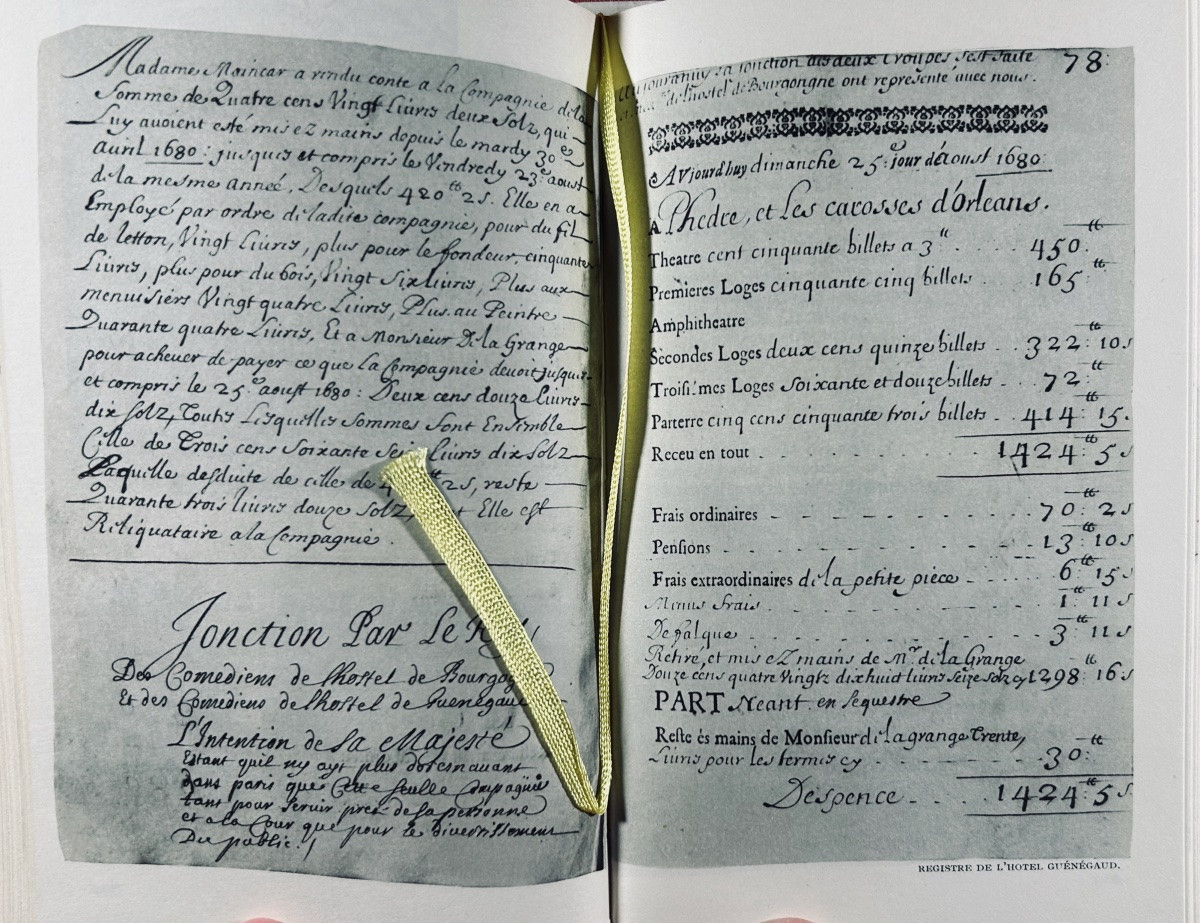 Madame Moincar a rendu conte a la Compagnie de la
Somme de Quatre cens Vingt Liuris deux solz, qui
Luy auoient esté mis ez mains depuis le mardy 30e
auril 1680: jusques et compris le Vendredy 23e aoust
de la mesme année, Desquels 420tt 2s. Elle en a
Employé par ordre de ladite compagnie, pour du fil
de letton, Vingt Liuris, plus pour le fondeur, cinquante
Liuris, plus pour du bois, Vingt Six Liuris, Plus aux
menuisiers Vingt quatre Liuris, Plus au Peintre
Quarante quatre Liuris, Et a Monsieur De la Grange
pour acheuer de payer ce que la Compagnie deuoit jusques
et compris le 25e aoust 1680: Deux cens douze liuris
dix solz, Toutes Lesquelles sommes sont Ensemble
Celle de Trois cens Soixante Seize liuris dix solz
Laquelle desduite de celle de 2s, reste
Quarante trois liuris douze solz, Elle est
Reliquataire a la Compagnie.
Jonction Par Le Roy
Des Comediens de lhostel de Bourgog
Et des Comediens de lhostel de Guenegaud
L'Intention de Sa Majesté
Estant quil ny ayt plus doresnauant
dans paris que Cette seulle Compagnie
tant pour seruir prez de sa personne
et a la Cour que pour le diuertissement
Du public.
78:
aujourdhuy la jonction des deux Troupes sest faite
de l'hostel de Bourgongne ont representé auec nous.
AVjourdhuy dimanche 25e jour d'Aoust 1680
A Phedre, et Les carosses d'Orleans.
Theatre cent cinquante billets a 3tt . . . . 450.tt
Premieres Loges cinquante cinq billets . . 165tt
Amphitheatre
Secondes Loges deux cens quinze billets . . 322tt: 10s
Troisi.mes Loges Soixante et douze billets . . 72:tt
Parterre cinq cens cinquante trois billets . . 414tt: 15.
Receu en tout . . . 1424tt: 5s
Frais ordinaires - - - - 70tt: 2s
Pensions - - - - 13tt: 10s
Frais extraordinaires de la petite piece - - - - 6tt: 15s
Menus frais - - - - 1tt: 11s
Defalque - - - - 3tt: 11s
Retiré, et mis ez mains de Mr. de la Grange
Douze cens quatre Vingtz dixhuit liuris seize solz cy 1298tt: 16s
PART Neant. en sequestre
Reste és mains de Monsieur de la grange Trente,
Liuris pour les termes cy - - - - 30:tt
Despence - - - - 1424tt: 5s
REGISTRE DE L'HOTEL GUÉNÉGAUD.